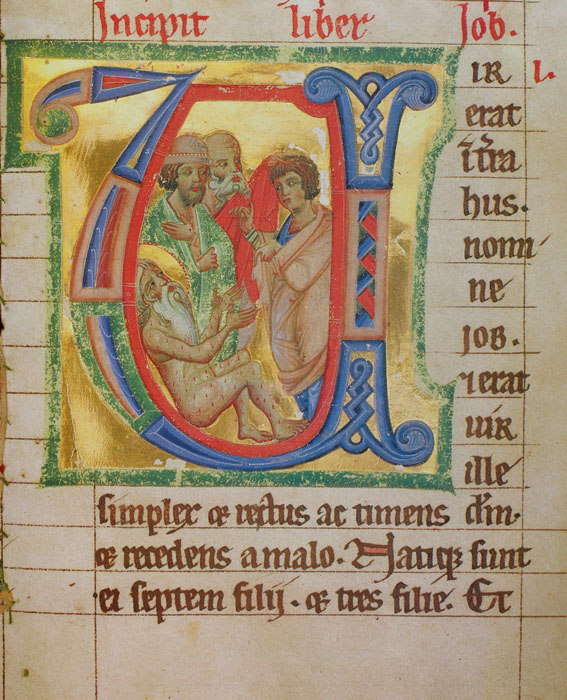 Incipit liber Job.
VIR I.
erat
i tr̄a
hus.
nomi
ne
job.
⁊ erat
uir
ille
simplex et rectus ac timens dm̄.
et recedens a malo. Natiq; sunt
ei septem filij. et tres filie. Et